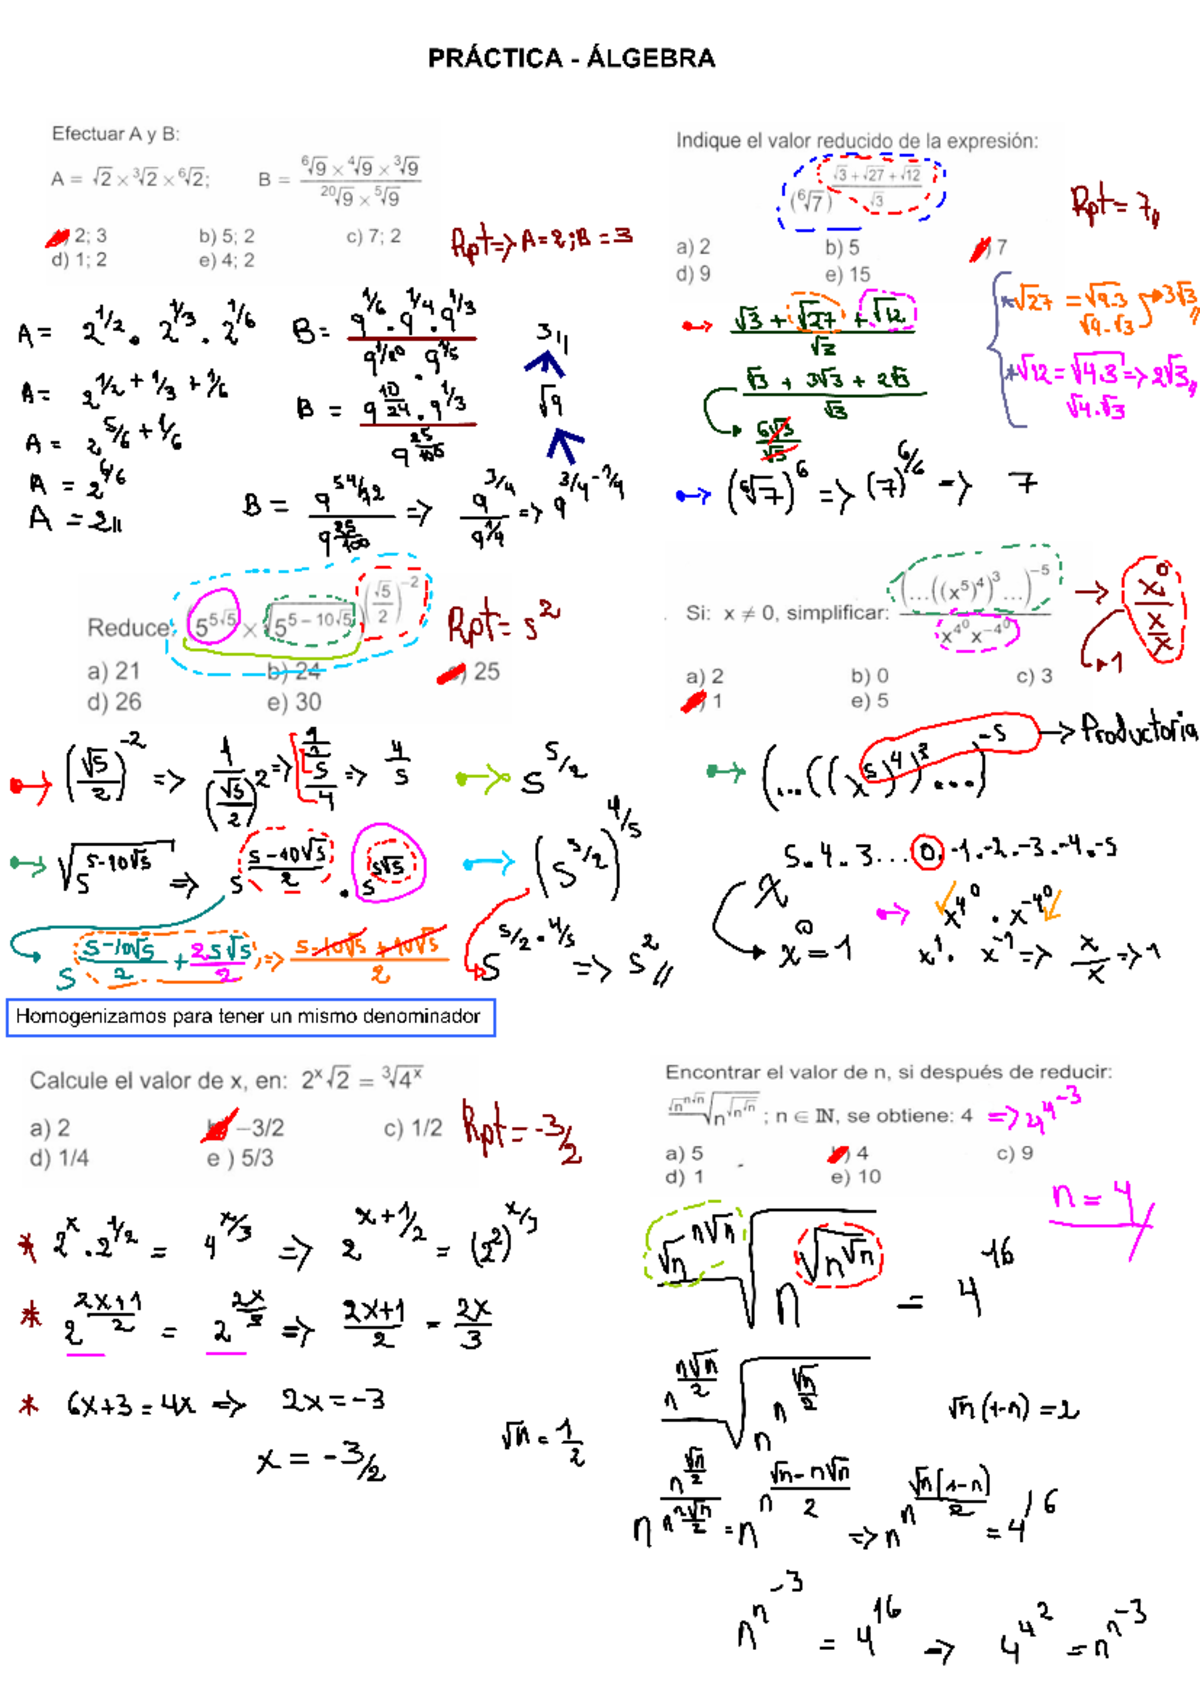 PRÁCTICA - ÁLGEBRA
Efectuar A y B:
A = √2 × ³√2 × ⁶√2; B = (⁶√9 × ⁴√9 × ³√9) / (²⁰√9 × ⁵√9)
2; 3 b) 5; 2 c) 7; 2
d) 1; 2 e) 4; 2
Rpt => A = 2; B = 3
A = 2^(1/2) . 2^(1/3) . 2^(1/6)
A = 2^(1/2 + 1/3 + 1/6)
A = 2^(5/6 + 1/6)
A = 2^(6/6)
A = 2
B = (9^(1/6) . 9^(1/4) . 9^(1/3)) / (9^(1/20) . 9^(1/5))
B = (9^(10/24) . 9^(1/3)) / 9^(25/100)
B = 9^(54/72) / 9^(25/100) => 9^(3/4) / 9^(1/4) => 9^(3/4 - 1/4)
√9
3
Indique el valor reducido de la expresión:
(⁶√7)^((√3 + √27 + √12) / √3)
a) 2 b) 5 ) 7
d) 9 e) 15
Rpt = 7
(√3 + √27 + √12) / √3
(√3 + 3√3 + 2√3) / √3
6√3 / √3
(⁶√7)^6 => (7)^(6/6) => 7
* √27 = √9.3 3√3
√9 . √3
* √12 = √4.3 => 2√3
√4 . √3
Reduce: (5^(5√5) × √(5^(5 - 10√5)))^((√5/2)^-2)
a) 21 b) 24 ) 25
d) 26 e) 30
Rpt = 5²
(√5/2)^-2 => 1/(√5/2)² => 1/(5/4) => 4/5
√(5^(5-10√5)) => 5^((5-10√5)/2) . 5^(5√5)
5^((5-10√5)/2 + 2.5√5/2) => (5-10√5+10√5)/2
5^(5/2)
(5^(5/2))^(4/5)
5^(5/2 . 4/5) => 5²
Homogenizamos para tener un mismo denominador
Si: x ≠ 0, simplificar: (...((x^5)^4)^3...)^-5 / (x^(4^0) x^(-4^0))
a) 2 b) 0 c) 3
) 1 e) 5
→ x^0 / (x/x)
→ 1
(...((x^5)^4)^3...)^-5 → Productoria
x^(5.4.3...0.-1.-2.-3.-4.-5)
x^0 = 1
x^(4^0) . x^(-4^0)
x^1 . x^-1 => x/x => 1
Calcule el valor de x, en: 2^x √2 = ³√(4^x)
a) 2 –3/2 c) 1/2
d) 1/4 e ) 5/3
Rpt = -3/2
* 2^x . 2^(1/2) = 4^(x/3) => 2^(x+1/2) = (2²)^(x/3)
* 2^((2x+1)/2) = 2^(2x/3) => (2x+1)/2 = 2x/3
* 6x+3 = 4x => 2x = -3
x = -3/2
Encontrar el valor de n, si después de reducir:
(√n^(n√n))√(n^(√(n^√n))) ; n ∈ IN, se obtiene: 4 => 4^(4^-3)
a) 5 ) 4 c) 9
d) 1 e) 10
n = 4
(√n^(n√n))√(n^(√(n^√n))) = 4^16
(n^(n√n/2))√(n^(n^(√n/2)))
√n (1-n) = 2
√n = 1/2
n^(n^(√n/2) / n^(n√n/2)) = n^(n^((√n - n√n)/2)) => n^(n^(√n(1-n)/2)) = 4^16
n^(n^-3) = 4^16 => 4^(4^2) = n^(n^-3)